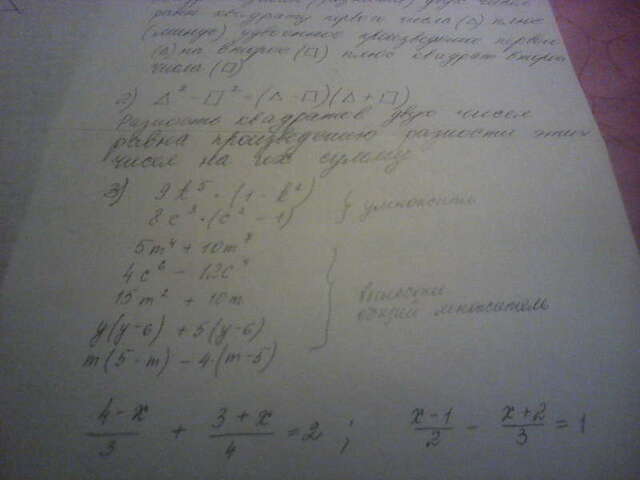 равен квадрату первого числа (△) плюс
(минус) удвоенное произведение первого
(△) на второе (□) плюс квадрат второго
числа (□)
2) △² - □² = (△ - □)(△ + □)
Разность квадратов двух чисел
равна произведению разности этих
чисел на их сумму
3) 9b⁵ · (1 - b²)
8c³ · (c² - 1) } умножить
5m⁴ + 10m⁷
4c⁶ - 12c⁴
15m² + 10m
y(y-6) + 5(y-6)
m(5-m) - 4·(m-5)
вынести
общий множитель
4-x/3 + 3+x/4 = 2 ; x-1/2 - x+2/3 = 1